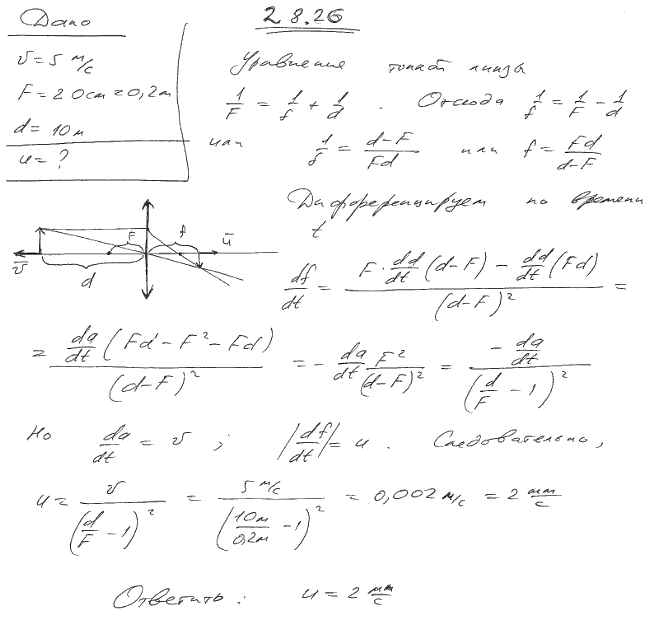 28.26
Дано
v = 5 м/с
F = 20см = 0,2м
d = 10м
u = ?
Уравнение тонкой линзы
1/F = 1/f + 1/d . Отсюда 1/f = 1/F − 1/d
или 1/f = (d−F)/(Fd) или f = Fd/(d−F)
Дифференцируем по времени
t
F f u
v d
df/dt = (F · dd/dt (d−F) − dd/dt (Fd))/(d−F)² =
= dd/dt (Fd − F² − Fd)/(d−F)² = − dd/dt F²/(d−F)² = − dd/dt /(d/F − 1)²
Но dd/dt = v ; |df/dt| = u . Следовательно,
u = v/(d/F − 1)² = 5 м/с/(10м/0,2м − 1)² = 0,002 м/с = 2 мм/с
Ответить : u = 2 мм/с